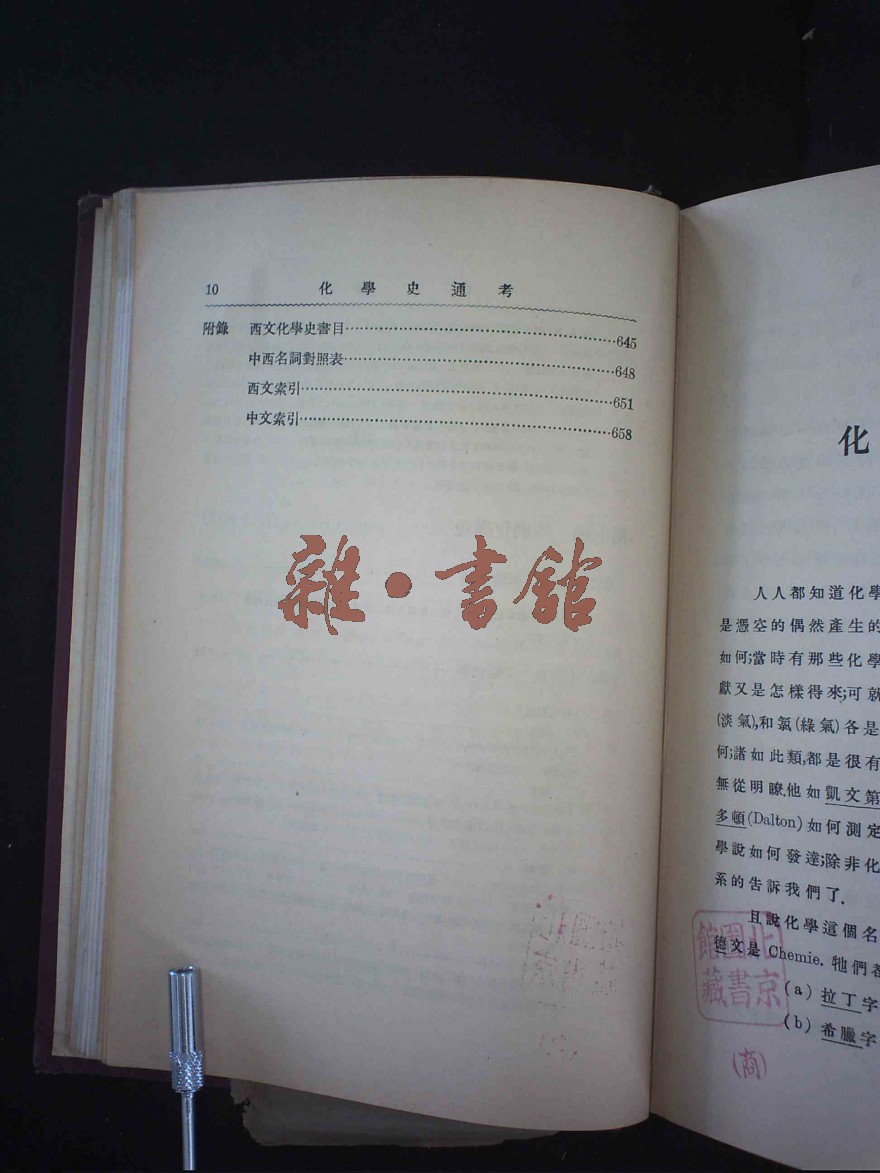 10 化學史通考
附錄 西文化學史書目……645
中西名詞對照表……648
西文索引……651
中文索引……658
雜·書館
化
人人都知道化學
是憑空的偶然產生的
如何;當時有那些化學
獻又是怎樣得來;可就
(淡氣),和氯(綠氣)各是
何;諸如此類,都是很有
無從明瞭.他如凱文第
多頓(Dalton)如何測定
學說如何發達;除非化
系的告訴我們了.
且說化學這個名
德文是 Chemie. 牠們者
(a) 拉丁字
(b) 希臘字
北京
圖書
館藏
(商)